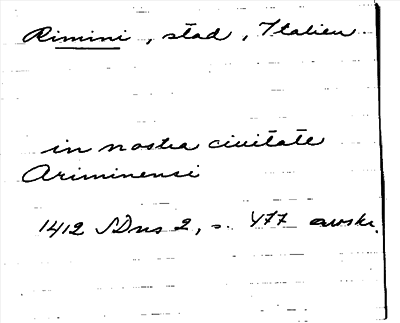 Rimini, stad, Italien
in nostra civitate
Ariminensi
1412 SDns 2, s. 477 avskr.